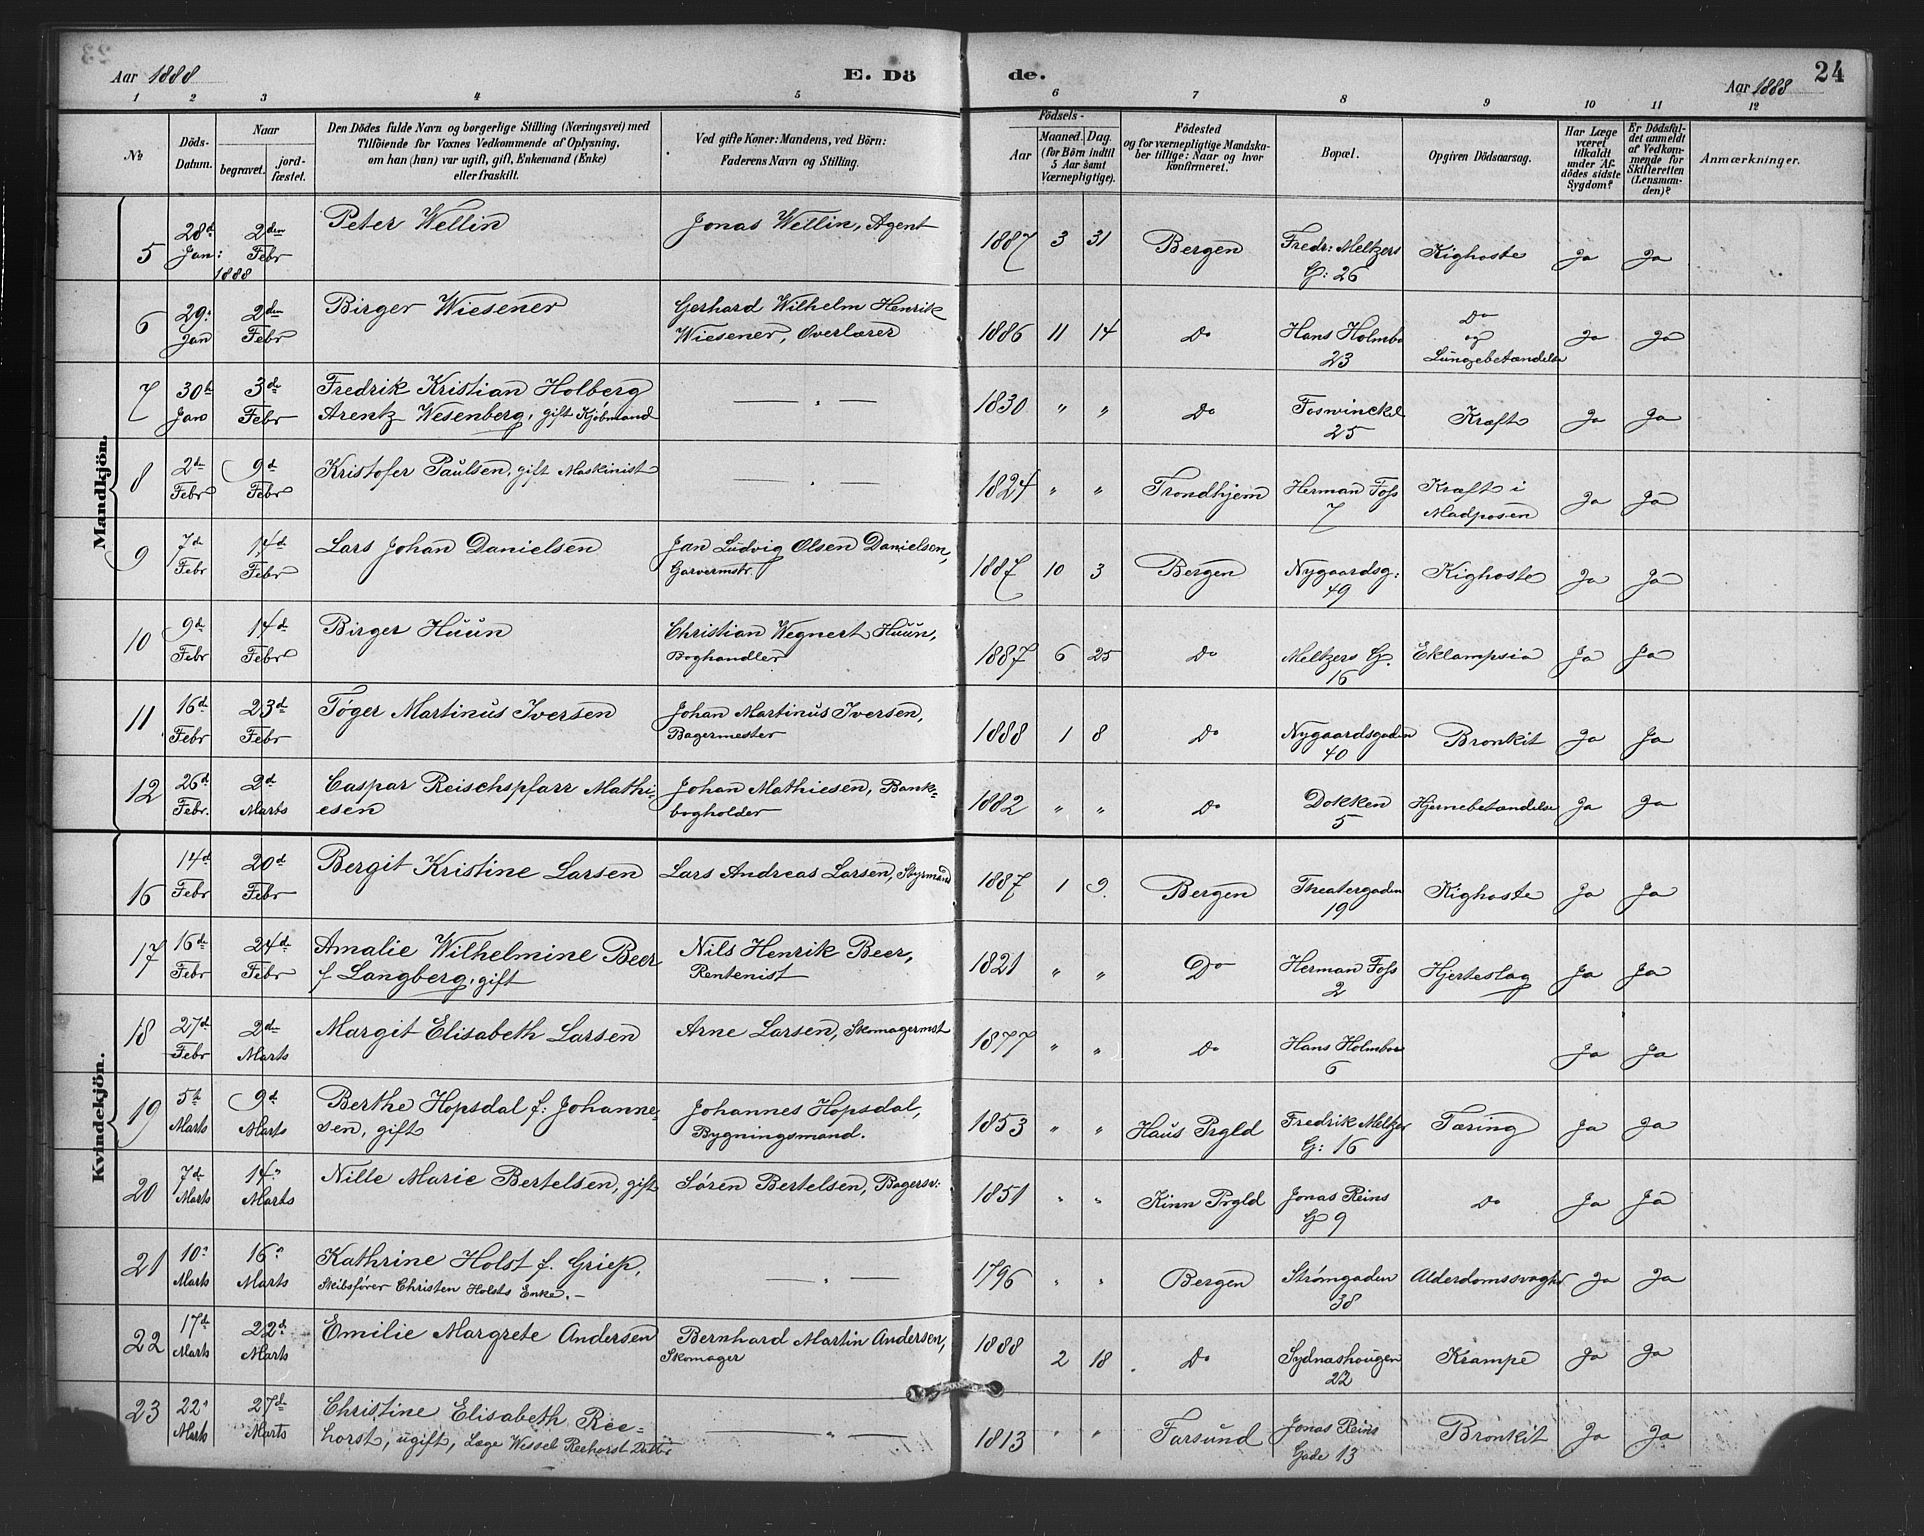 Aar 1888
E. Dö
de.
Aar 1888
24
1 2 3 4 5 6 7 8 9 10 11 12
No
Döds-Datum.
Naar
begravet.
jord-fæstet.
Den Dödes fulde Navn og borgerlige Stilling (Næringsvei) med
Tilföiende for Voxnes Vedkommende af Oplysning,
om han (hun) var ugift, gift, Enkemand (Enke)
eller fraskilt.
Ved gifte Koner: Mandens, ved Börn:
Faderens Navn og Stilling.
Födsels-
Aar
Maaned. Dag.
(for Börn indtil
5 Aar samt
Værnepligtige).
Födested
og for værnepligtige Mandska-
ber tillige: Naar og hvor
konfirmeret.
Bopæl.
Opgiven Dödsaarsag.
Har Læge
været
tilkaldt
under Af-
dödes sidste
Sygdom?
Er Dödsfal-
det anmeldt
af Vedkom-
mende for
Skifteretten
(Lensman-
den)?
Anmærkninger.
Mandkjön.
5 28d Jan: 1888 2den Febr Peter Wellin Jonas Wellin, Agent 1887 3 31 Bergen Fredr: Meltzers G: 26 Kighoste Ja Ja
6 29. Jan 2den Febr Birger Wiesener Gerhard Wilhelm Henrik
Wiesener, Overlærer 1886 11 14 Do Hans Holmbo 23 Do og Lungebetændelse Ja Ja
7 30t Jan 3de Febr Fredrik Kristian Holberg
Arentz Wesenberg, gift Kjøbmand — " — 1830 " " Do Foswinckel 25 Kræft Ja Ja
8 2de Febr 9d Febr Kristofer Paulsen, gift Maskinist — " — 1824 " " Trondhjem Herman Foss 7 Kræft i Madposen Ja Ja
9 7de Febr 14d Febr Lars Johan Danielsen Jan Ludvig Olsen Danielsen,
Garvermstr. 1887 10 3 Bergen Nygaardsg: 49 Kighoste Ja Ja
10 9de Febr 14d Febr Birger Huun Christian Wegnert Huun,
Boghandler 1887 6 25 Do Meltzers G. 16 Eklampsia Ja Ja
11 16d Febr 23d Febr Tøger Martinus Iversen Johan Martinus Iversen,
Bagermester 1888 1 8 Do Nygaardsgaden 40 Bronkit Ja Ja
12 26d Febr. 2d Marts Caspar Reischspfarr Mathi-
esen Johan Mathiesen, Bank-
bogholder 1882 " " Do Dokken 5 Hjernebetændelse Ja Ja
Kvindekjön.
16 14d Febr 20d Febr Bergit Kristine Larsen Lars Andreas Larsen, Styrmand 1887 1 9 Bergen Theatergaden 19 Kighoste Ja Ja
17 16de Febr 24de Febr Amalie Wilhelmine Beer
f Langberg, gift Nils Henrik Beer,
Rentenist 1821 " " Do Herman Foss 2 Hjerteslag Ja Ja
18 27de Febr 2de Marts Margit Elisabeth Larsen Arne Larsen, Skomagermst 1877 " " Do Hans Holmboe 6 Ja Ja
19 5te Marts 9d Marts Berthe Hopsdal f: Johanne-
sen, gift Johannes Hopsdal,
Bygningsmand. 1853 " " Haus Prgld Fredrik Meltzer G: 16 Tæring Ja Ja
20 7de Marts 14. Marts Nille Marie Bertelsen, gift Søren Bertelsen, Bagersv: 1851 " " Kinn Prgld Jonas Reins G 9 Do Ja Ja
21 10. Marts 16. Marts Kathrine Holst f. Griep,
Skibsfører Christen Holsts Enke. — " — 1796 " " Bergen Strømgaden 38 Alderdomssvaghd Ja Ja
22 17de Marts 22de Marts Emilie Margrete Andersen Bernhard Martin Andersen,
Skomager 1888 2 18 Do Sydnæshougen 22 Krampe Ja Ja
23 22. Marts 27de Marts Christine Elisabeth Ree-
horst, ugift, Læge Wessel Reehorst Datter — " — 1813 " " Farsund Jonas Reins Gade 13 Bronkit Ja Ja